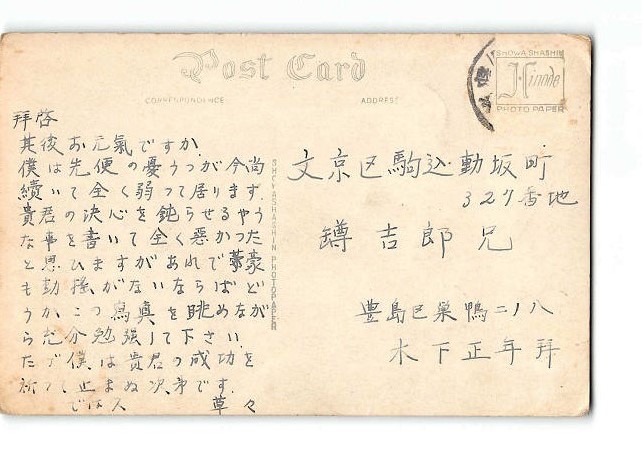 Post Card
CORRESPONDENCE
ADDRESS
SHOWA SHASHIN
Hinode
PHOTO PAPER
SHOWASHASHIN PHOTOPAPER
拝啓
其後お元氣ですか
僕は先便の憂うつが今尚
續いて全く弱って居ります
貴君の決心を鈍らせるやう
な事を書いて全く悪かった
と思ひますがあれで豪
も動揺がないならばど
うかこの寫真を眺めなが
ら充分勉強して下さい
たゞ僕は貴君の成功を
祈って止まぬ次第です
では又 草々
文京区駒込動坂町
327番地
吉郎兄
豊島区巣鴨二ノ八
木下正年拝